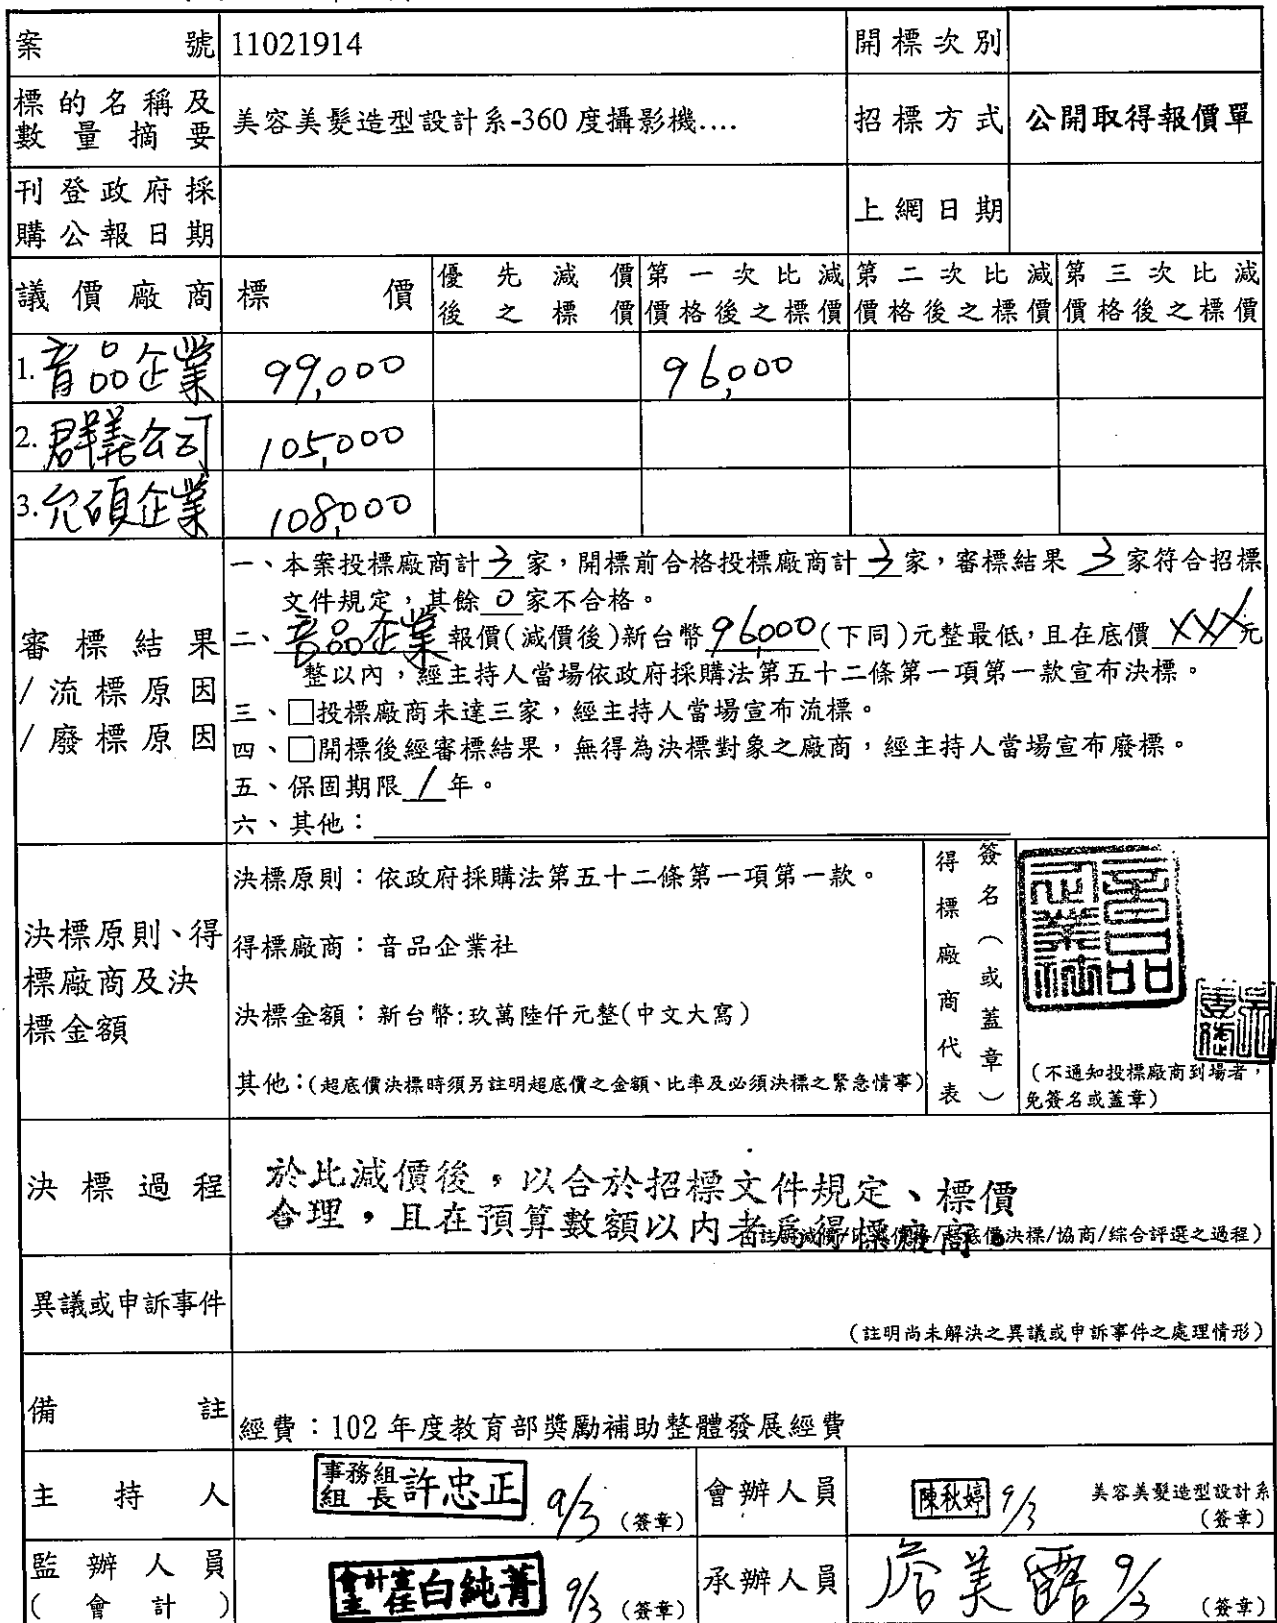 案號 11021914 開標次別
標的名稱及數量摘要 美容美髮造型設計系-360度攝影機.... 招標方式 公開取得報價單
刊登政府採購公報日期 上網日期
議價廠商 標價 優先減價後之標價 第一次比減價格後之標價 第二次比減價格後之標價 第三次比減價格後之標價
1. 音品企業 99,000 96,000
2. 群義公司 105,000
3. 允碩企業 108,000
審標結果/流標原因/廢標原因
一、本案投標廠商計 3 家，開標前合格投標廠商計 3 家，審標結果 3 家符合招標
文件規定，其餘 0 家不合格。
二、音品企業 報價(減價後)新台幣 96,000 (下同)元整最低，且在底價 XXX 元
整以內，經主持人當場依政府採購法第五十二條第一項第一款宣布決標。
三、□投標廠商未達三家，經主持人當場宣布流標。
四、□開標後經審標結果，無得為決標對象之廠商，經主持人當場宣布廢標。
五、保固期限 1 年。
六、其他：
決標原則、得標廠商及決標金額
決標原則：依政府採購法第五十二條第一項第一款。
得標廠商：音品企業社
決標金額：新台幣:玖萬陸仟元整(中文大寫)
其他：(超底價決標時須另註明超底價之金額、比率及必須決標之緊急情事)
得標廠商代表
簽名（或蓋章）
音品企業社
(不通知投標廠商到場者，
免簽名或蓋章)
決標過程
於比減價後，以合於招標文件規定、標價
合理，且在預算數額以內者為得標廠商。
決標/協商/綜合評選之過程)
異議或申訴事件
(註明尚未解決之異議或申訴事件之處理情形)
備註 經費：102年度教育部獎勵補助整體發展經費
主持人 事務組組長許忠正 9/3 (簽章) 會辦人員 陳秋婷 9/3 美容美髮造型設計系 (簽章)
監辦人員(會計) 會計室主任白純菁 9/3 (簽章) 承辦人員 詹美露 9/3 (簽章)